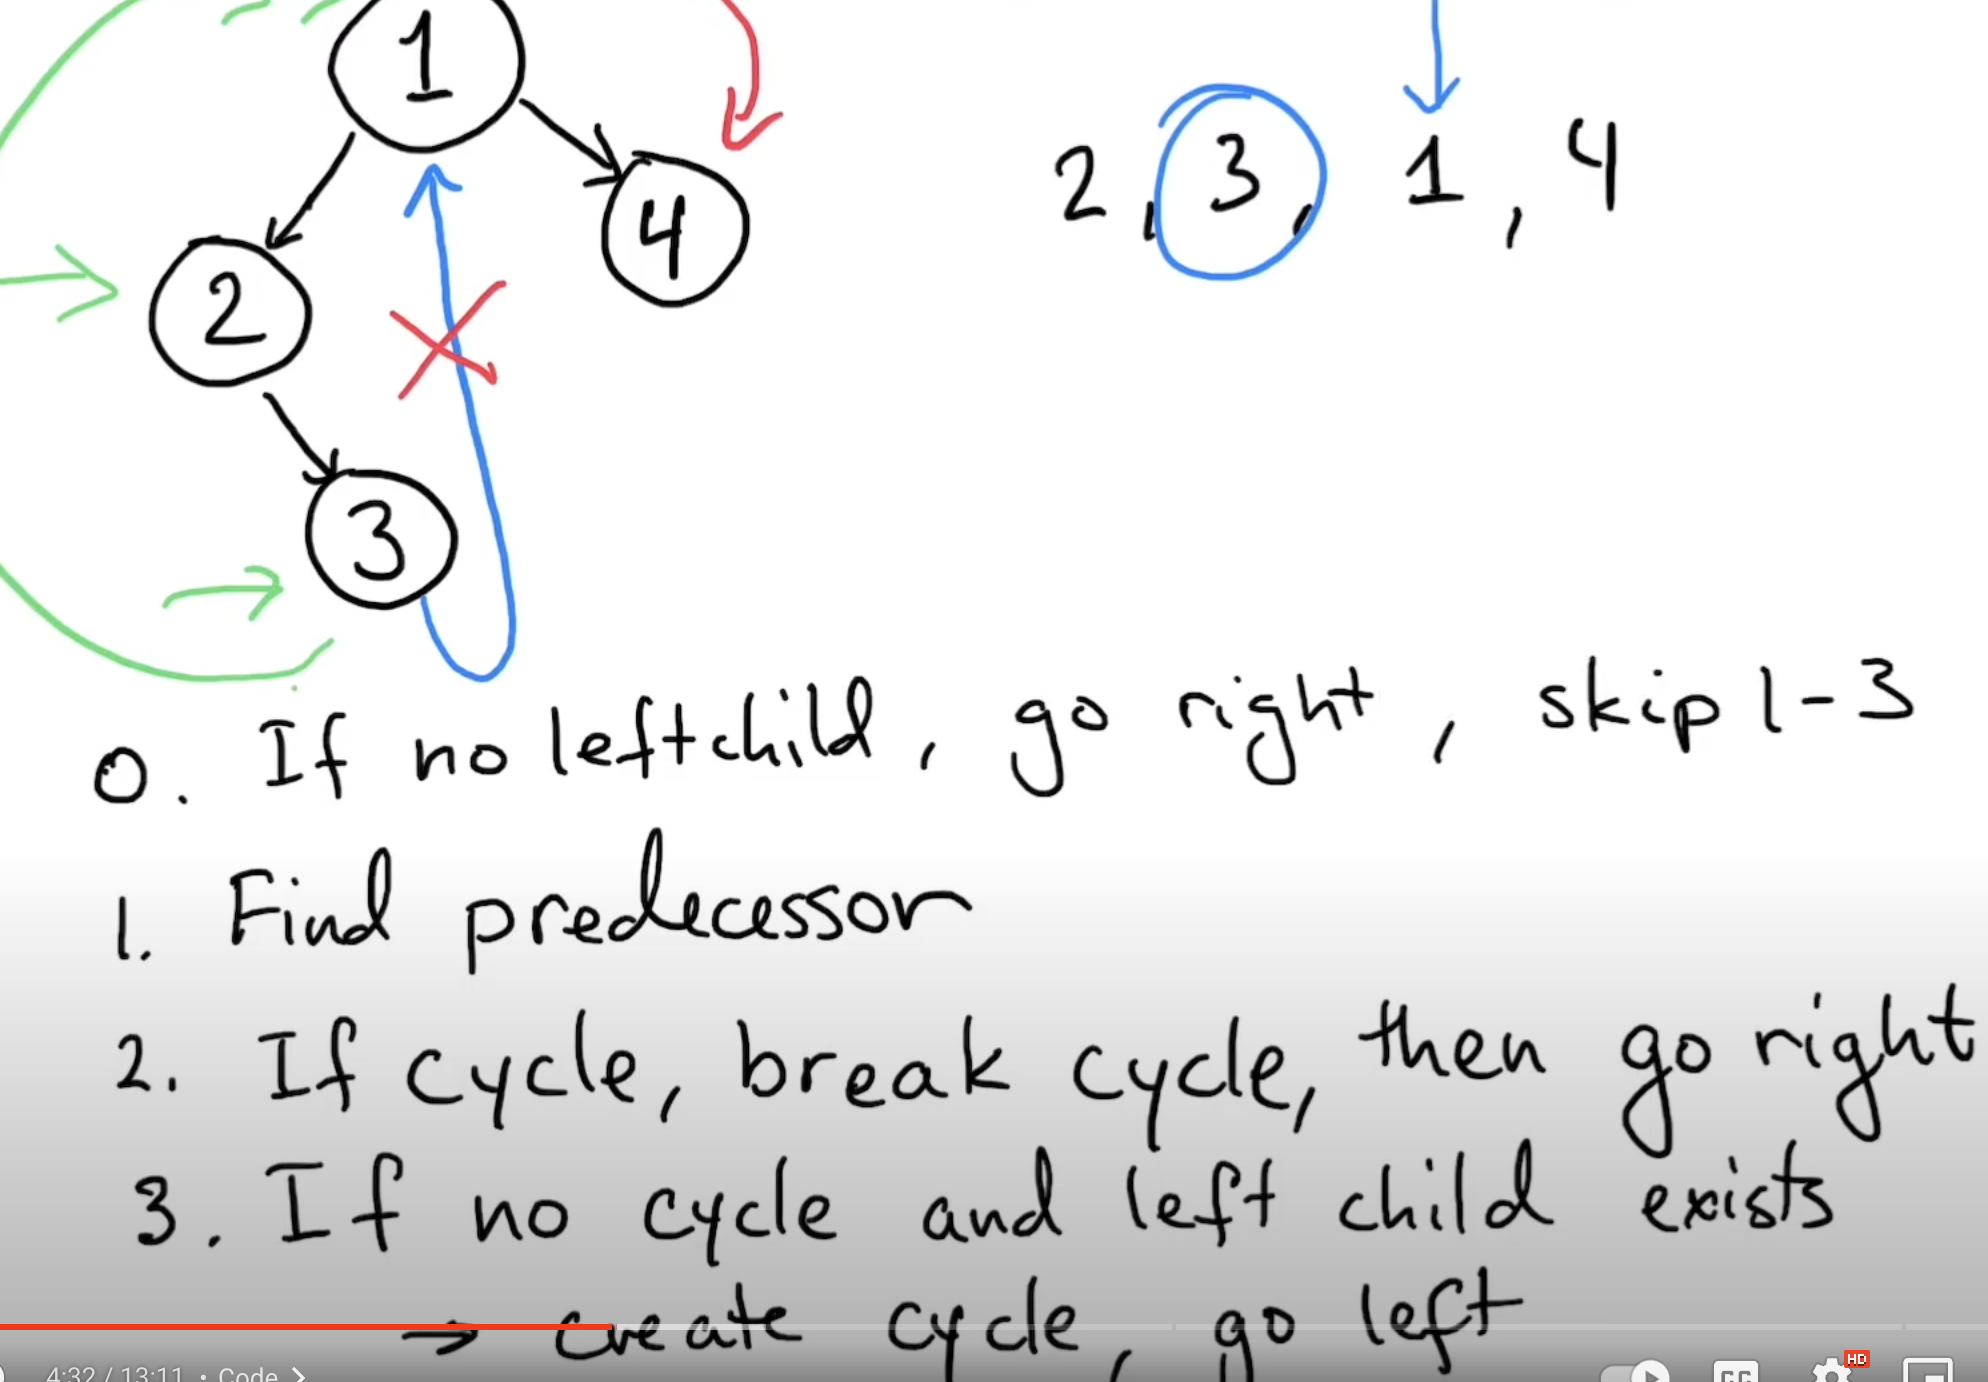 1
2 , 3 , 1 , 4
4
2
3
0. If no left child, go right, skip 1-3
1. Find predecessor
2. If cycle, break cycle, then go right
3. If no cycle and left child exists
→ create cycle, go left
4:32 / 13:11 • Code >
CC HD